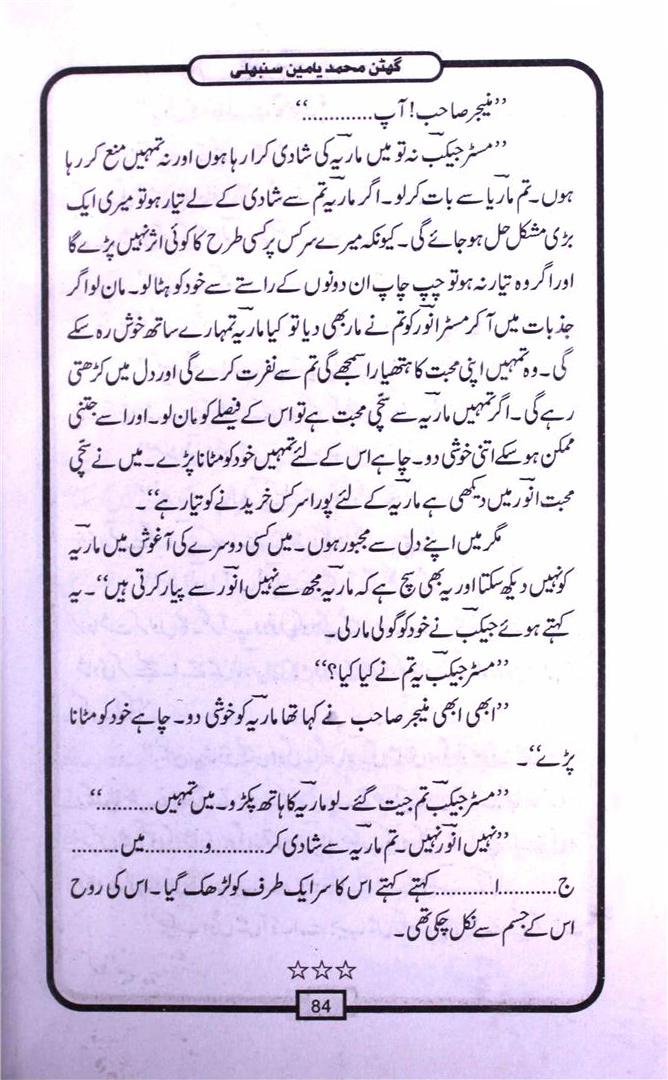 گھٹن محمد یامین سنبھلی
’’منیجر صاحب! آپ............‘‘
’’مسٹر جیکب نہ تو میں ماریہ کی شادی کرا رہا ہوں اور نہ تمہیں منع کر رہا
ہوں۔ تم ماریا سے بات کر لو۔ اگر ماریہ تم سے شادی کے لے تیار ہو تو میری ایک
بڑی مشکل حل ہو جائے گی۔ کیونکہ میرے سرکس پر کسی طرح کا کوئی اثر نہیں پڑے گا
اور اگر وہ تیار نہ ہو تو چپ چاپ ان دونوں کے راستے سے خود کو ہٹا لو۔ مان لو اگر
جذبات میں آ کر مسٹر انور کو تم نے مار بھی دیا تو کیا ماریہ تمہارے ساتھ خوش رہ سکے
گی۔ وہ تمہیں اپنی محبت کا ہتھیارا سمجھے گی تم سے نفرت کرے گی اور دل میں کڑھتی
رہے گی۔ اگر تمہیں ماریہ سے سچّی محبت ہے تو اس کے فیصلے کو مان لو۔ اور اسے جتنی
ممکن ہو سکے اتنی خوشی دو۔ چاہے اس کے لئے تمہیں خود کو مٹانا پڑے۔ میں نے سچّی
محبت انور میں دیکھی ہے ماریہ کے لئے پورا سرکس خریدنے کو تیار ہے‘‘۔
مگر میں اپنے دل سے مجبور ہوں۔ میں کسی دوسرے کی آغوش میں ماریہ
کو نہیں دیکھ سکتا اور یہ بھی سچ ہے کہ ماریہ مجھ سے نہیں انور سے پیار کرتی ہیں‘‘۔ یہ
کہتے ہوئے جیکب نے خود کو گولی مار لی۔
’’مسٹر جیکب یہ تم نے کیا کیا؟‘‘
’’ابھی ابھی منیجر صاحب نے کہا تھا ماریہ کو خوشی دو۔ چاہے خود کو مٹانا
پڑے‘‘۔
’’مسٹر جیکب تم جیت گئے۔ لو ماریہ کا ہاتھ پکڑو۔ میں تمہیں..........‘‘
’’نہیں انور نہیں۔ تم ماریہ سے شادی کر.........و.........میں.........
ج..........ا..........کہتے کہتے اس کا سر ایک طرف کو لڑھک گیا۔ اس کی روح
اس کے جسم سے نکل چکی تھی۔
☆☆☆
84